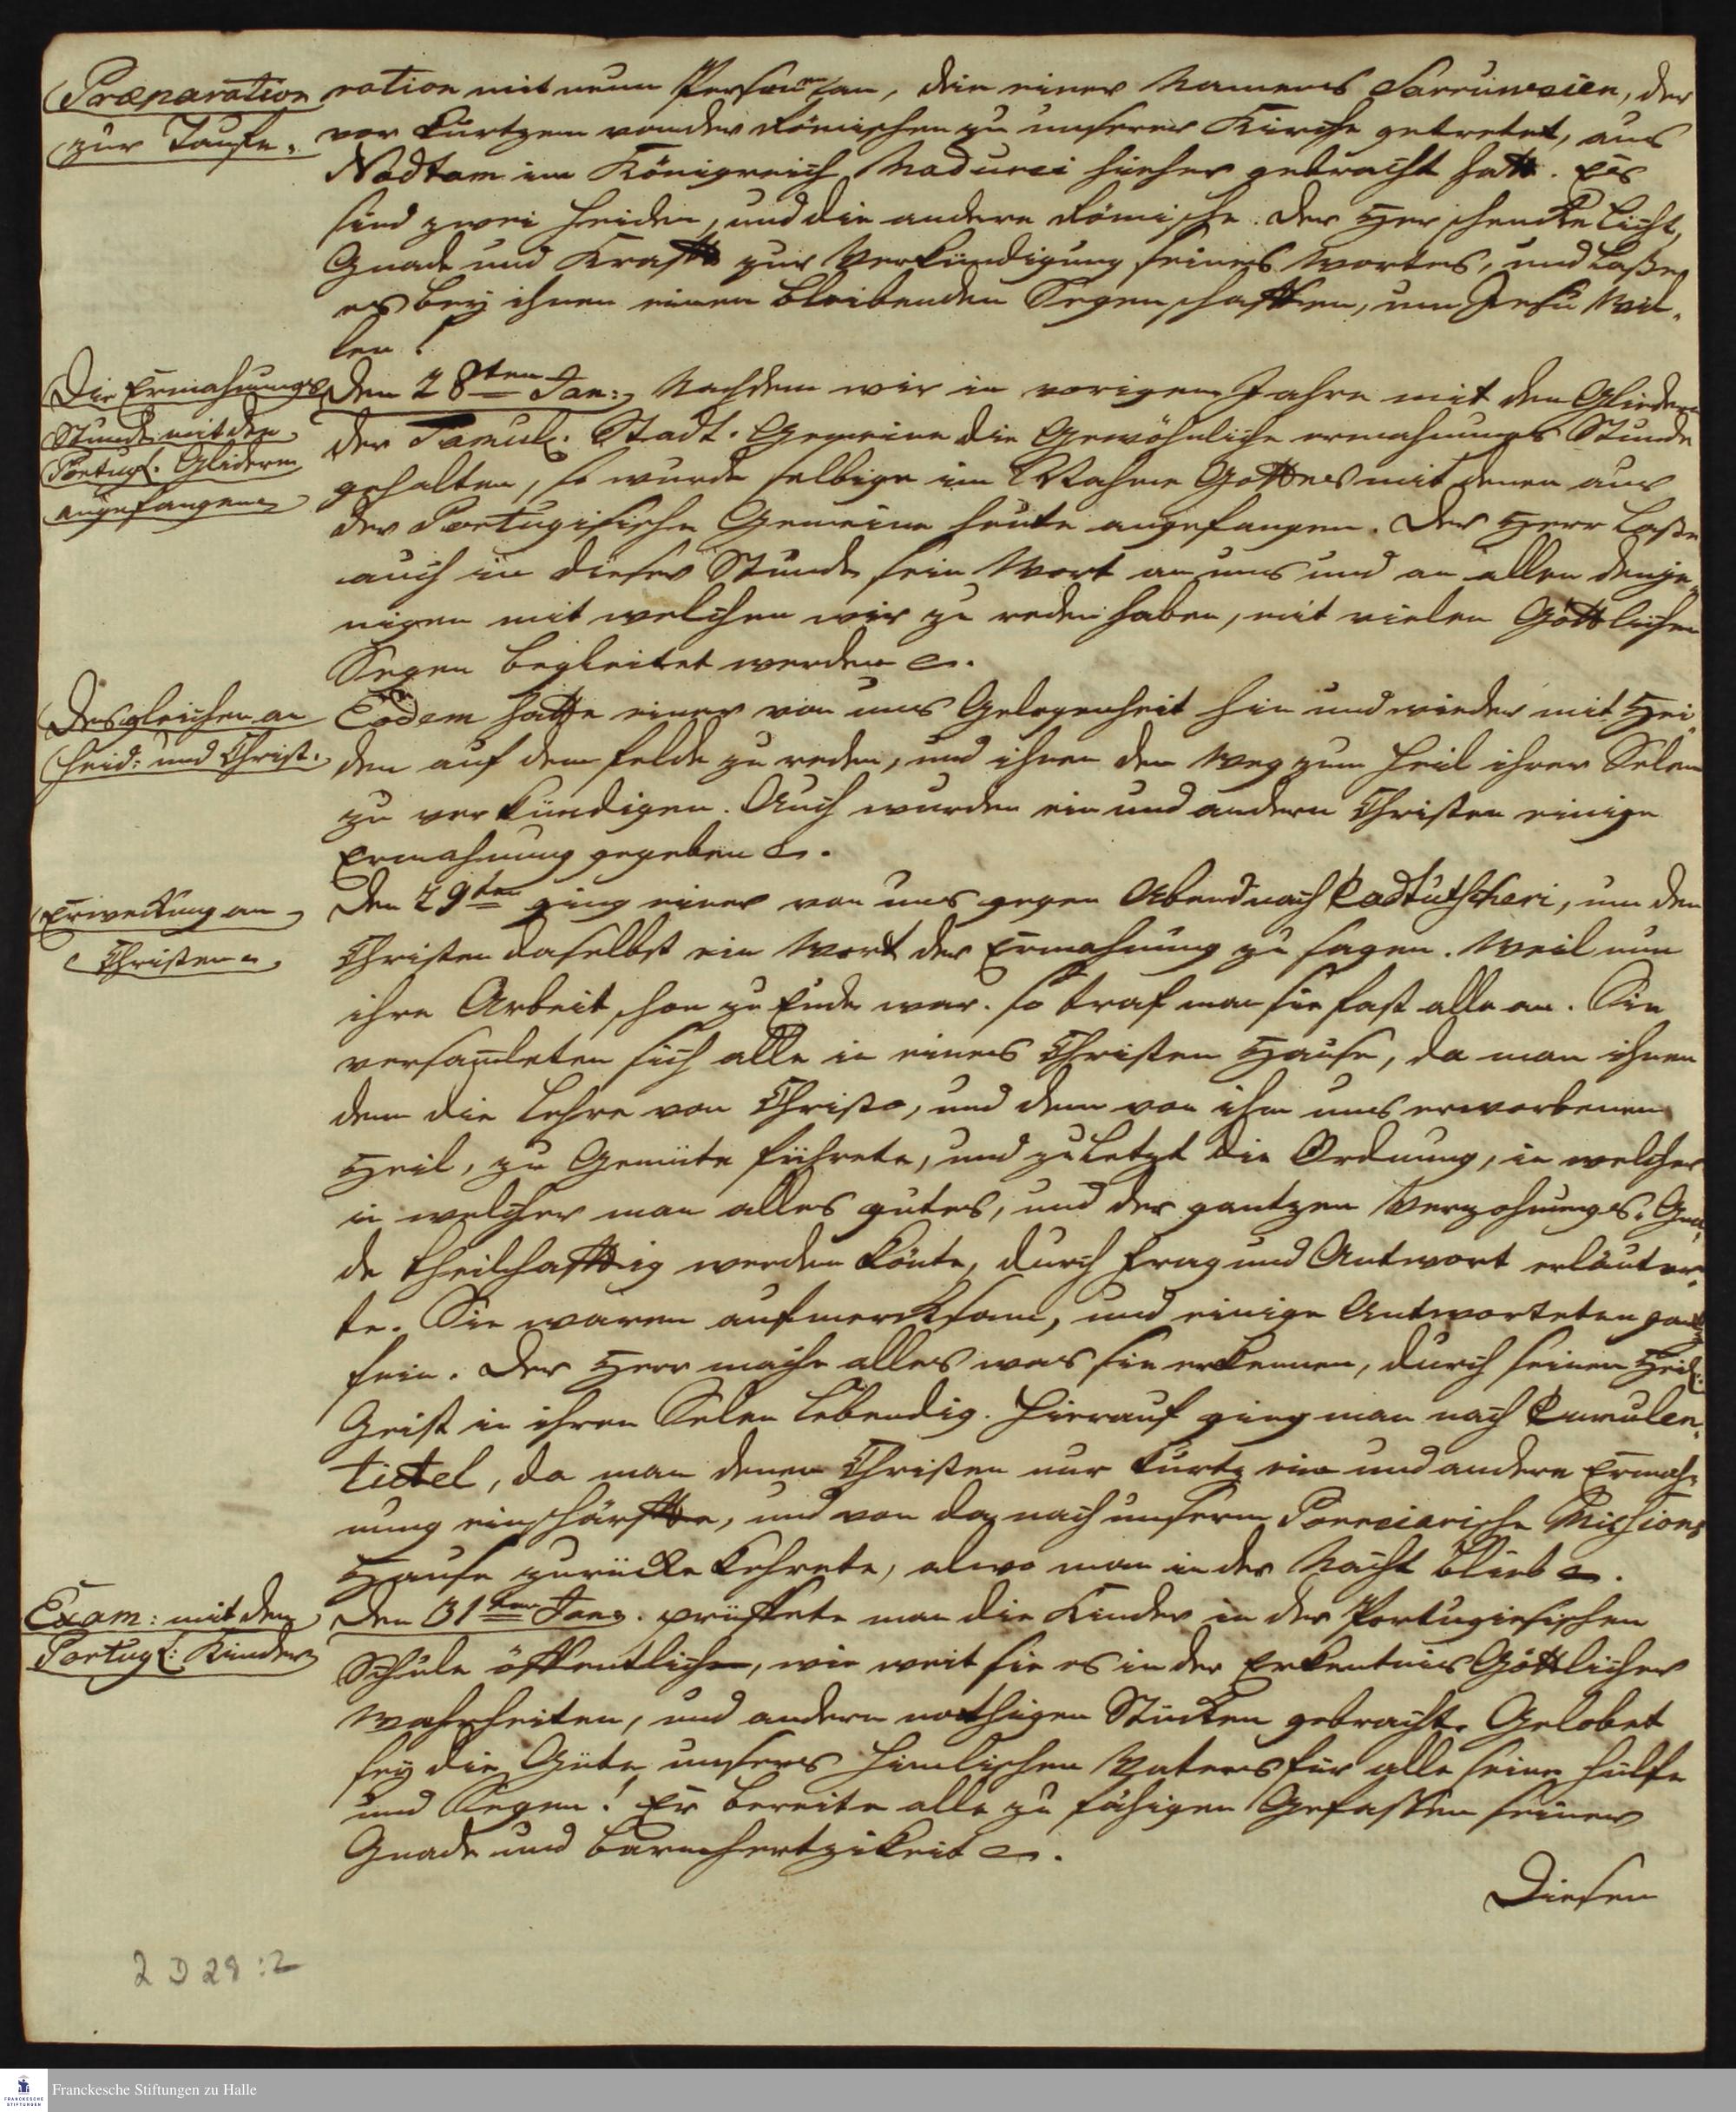 Præparation
zur Taufe.
ration mit neun Personen an, die einer Namens Sarruweien, der
vor kurtzem von der Römischen zu unserer Kirche getretet, aus
Nadtam im Königreich Madurei hieher gebracht hatt. Es
sind zwei Heiden, und die andere Römische. Der Herr schencke Licht,
Gnade und Krafft zur Verkündigung seines Wortes, und laße
es bey ihnen einen bleibenden Segen schaffen, um Jesu Wil-
len!
Die Ermahnungs
Stunde mit den
Portugs. Glidern
angefangen
Den 28ten Jan: Nachdem wir in vorigem Jahre mit den Gliedern
der Tamul. Stadt-Gemeine die Gewöhnliche ermahnungs Stunde
gehalten, so wurde selbige im Nahme Gottes mit denen aus
der Portugisische Gemeine heute angefangen. Der Herr laße
auch in dieser Stunde sein Wort an uns und an allen denje-
nigen mit welchen wir zu reden haben, mit vielen Göttlichen
Segen begleitet werden.
Desgleichen an
Heid: und Christ.
Eodem hatte einer von uns Gelegenheit hin und wieder mit Hei-
den auf dem felde zu reden, und ihnen den Weg zum Heil ihrer Selen
zu verkündigen. Auch wurden ein und andern Christen einige
Ermahnung gegeben.
Erweckung an
Christen
Den 29ten ging einer von uns gegen Abend nach Padtutscheri, um den
Christen daselbst ein Wort der Ermahnung zu sagen. Weil nun
ihre Arbeit schon zu Ende war. so traf man sie fast alle an. Sie
versamleten sich alle in eines Christen Hause, da man ihnen
denn die Lehre von Christo, und dem von ihm uns erworbenen
Heil, zu Gemüte führete, und zuletzt die Ordnung, in welcher
in welcher man alles gutes, und der gantzen Versohnungs-Gna-
de theilhafftig werden könte, durch frag und Antwort erläuter-
te. Sie waren aufmercksam, und einige Antworteten gantz
fein. Der Herr mache alles was sie erkennen, durch seinen Heil.
Geist in ihren Selen lebendig. Hierauf ging man nach Purulen-
tictel, da man denen Christen nur kurtz ein und andere Ermah-
nung einschärffte, und von da nach unserm Poreiarische Missions
Hause zurücke kehrete, alwo man in der Nacht blieb.
Exam: mit den
Portugs: Kinder
Den 31ten Jan. prüffete man die Kinder in der Portugiesischen
Schule öffentlich, wie weit sie es in der Erkentnis Göttlicher
Wahrheiten, und andern nothigen Stücken gebracht. Gelobet
sey die Güte unsers Himlischen Vaters für alle seine Hülfe
und Segen! Er bereite alle zu fähigen Gefassen seiner
Gnade und barmhertzikeit.
Diesen
2 D 29 : 2
FRANCKESCHE STIFTUNGEN
Franckesche Stiftungen zu Halle